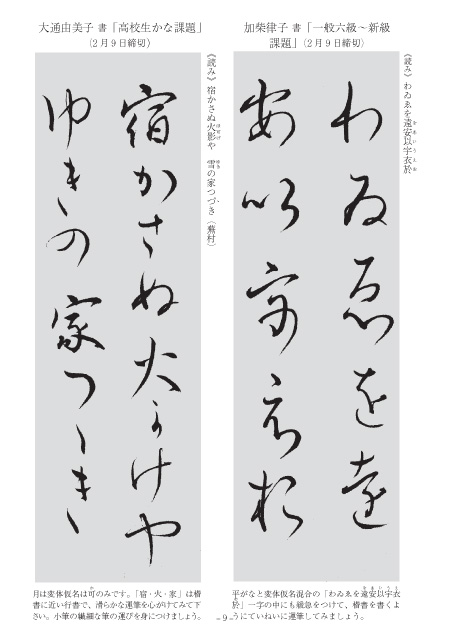 加柴律子 書「一般六級~新級
課題」(2月9日締切)
《読み》わゐゑを遠安以宇衣於
わゐゑを遠
安以宇衣於
平がなと変体仮名混合の「わゐゑを遠安以宇衣
於」一字の中にも緩急をつけて、楷書を書くよ
うにていねいに運筆してみましょう。
大通由美子 書「高校生かな課題」
(2月9日締切)
《読み》宿かさぬ火影や 雪の家つづき(蕪村)
宿かさぬ火可けや
ゆきの家つゝき
月は変体仮名は可のみです。「宿・火・家」は楷
書に近い行書で、滑らかな運筆を心がけてみて下
さい。小筆の繊細な筆の運びを身につけましょう。
- 9 -